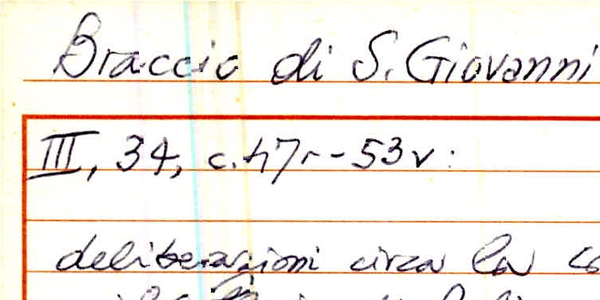 Braccio di S. Giovanni
III, 34, c. 47r - 53v:
deliberazioni circa la